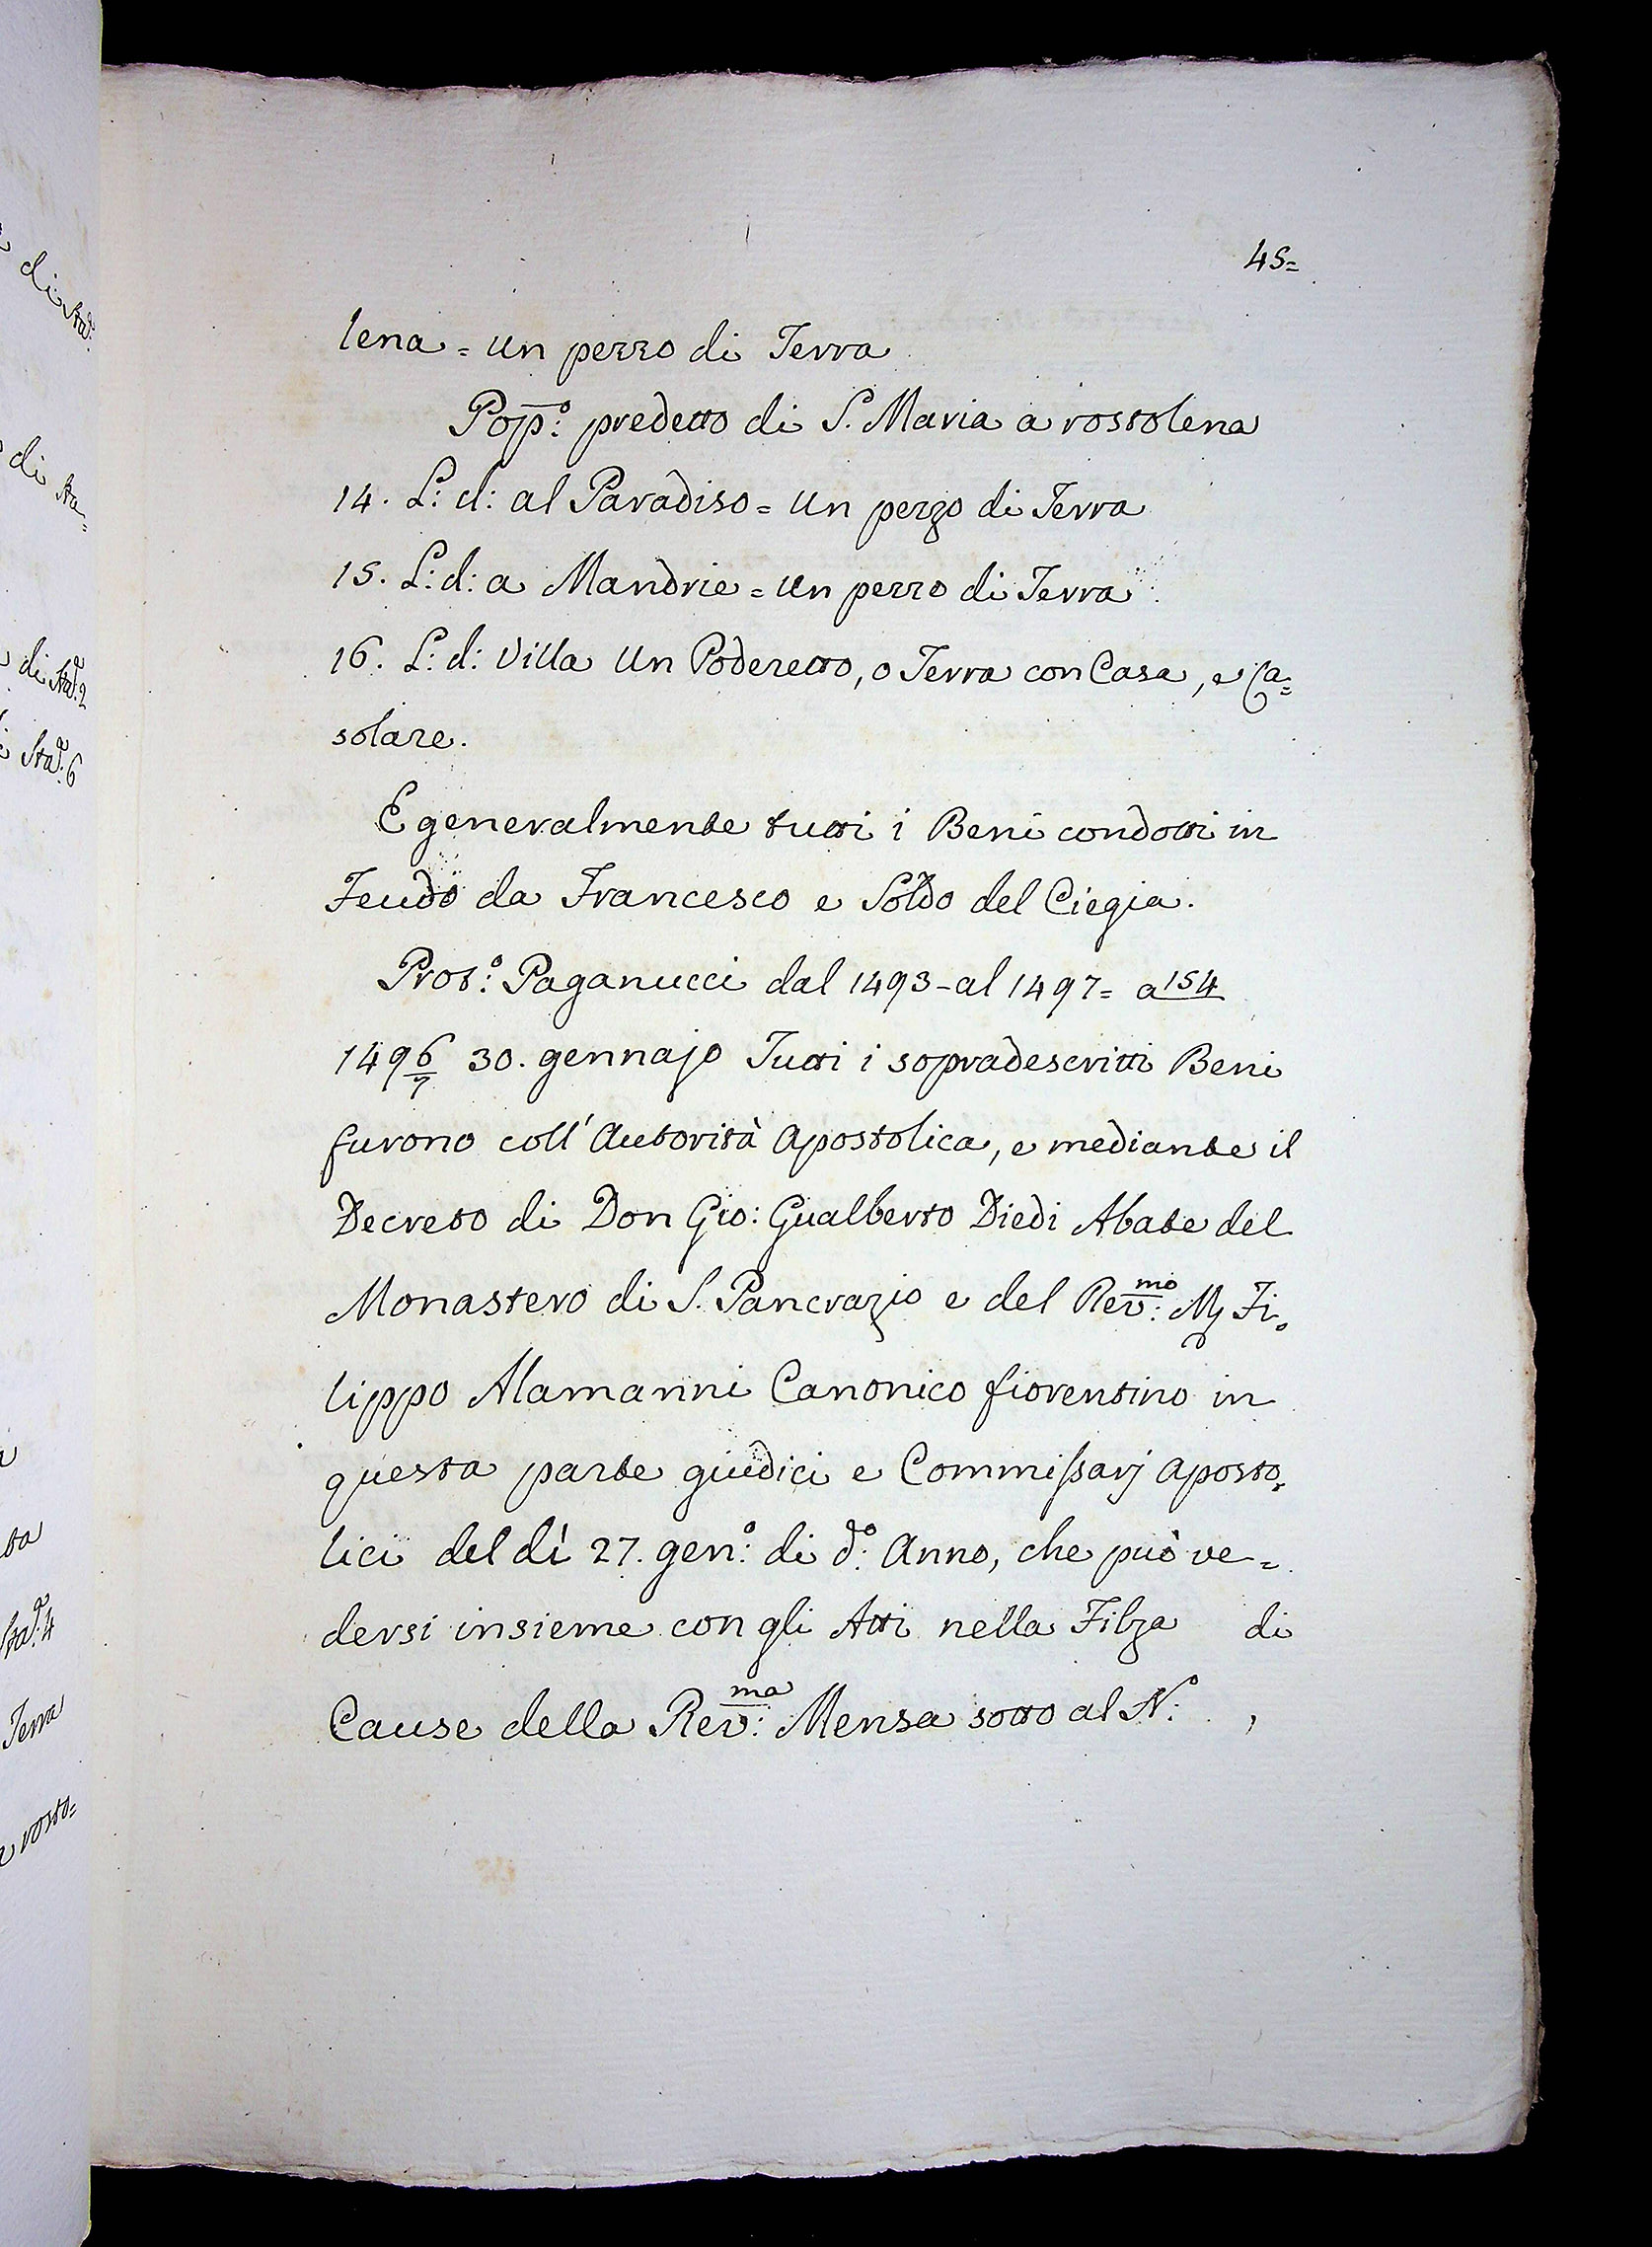 45=
lena = un pezzo di Terra
Pop:º predetto di S. Maria a rostolena
14. L: d: al Paradiso = un pezzo di Terra
15. L: d: a Mandrie = un pezzo di Terra
16. L: d: Villa Un Poderetto, o Terra con Casa, e Ca=
solare.
E generalmente tutti i Beni condotti in
Feudo da Francesco e Soldo del Ciegia.
Prot:º Paganucci dal 1493 - al 1497 = a 154
1496/7 30. gennajo Tutti i sopradescritti Beni
furono coll' Autorità Apostolica, e mediante il
Decreto di Don Gio: Gualberto Diedi Abate del
Monastero di S. Pancrazio e del Rev:mo M Fi=
lippo Alamanni Canonico fiorentino in
questa parte giudici e Commissarj Aposto=
lici del dì 27. gen:º di d:º Anno, che può ve=
dersi insieme con gli Atti nella Filza di
Cause della Rev:ma Mensa sotto al N:º ,
di Sta:ª
di Sta=
di Sta:ª 2
Sta:ª 6
Sta:ª 4
Terra
rosto=